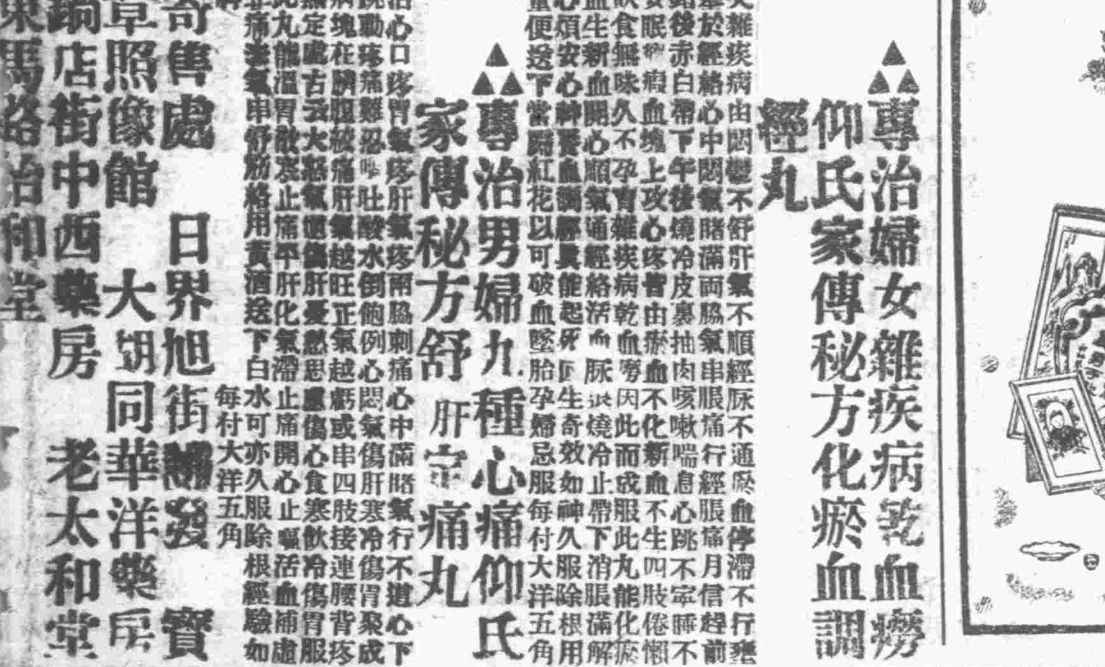 專治婦女雜疾病乾血癆
仰氏家傳秘方化瘀血調
經丸
雜疾病由悶鬱不舒肝氣不順經脉不通瘀血停滯不行壅
於經絡心中悶氣賭滿兩脇氣串脹痛行經脹痛月信趕前
後赤白帶下午後燒冷皮裏抽肉咳嗽喘息心跳不寧睡不
眠 血塊上攻心疼皆由瘀血不化新血不生四肢倦懶
飲食無味久不孕育雜疾病乾血癆因此而成服此丸能化瘀
血生新血開心順氣通經絡活血脉 燒冷止帶下消脹滿解
心煩安心神養血調經眞能起死回生奇效如神久服除根用
量便送下當歸紅花以可破血墜胎孕婦忌服每付大洋五角
專治男婦九種心痛仰氏
家傳秘方舒肝定痛丸
治心口疼胃氣疼肝氣疼兩脇刺痛心中滿賭氣行不道心下
跳動疼痛難忍 吐酸水倒飽例心悶氣傷肝寒冷傷胃聚成
病塊在臍腹 痛肝氣越旺正氣越虧或串四肢接連腰背疼
無定處古云大怒氣 傷肝憂愁思慮傷心食寒飲冷傷胃服
此丸能溫胃散寒止痛平肝化氣滯止痛開心止嘔活血補虛
止痛 氣串舒筋絡用黃酒送下白水可亦久服除根經驗如
每村大洋五角
寄售處 日界旭街 發 寶
章照像館 大胡同華洋藥房
鍋店街中西藥房 老太和堂
東馬路治和堂